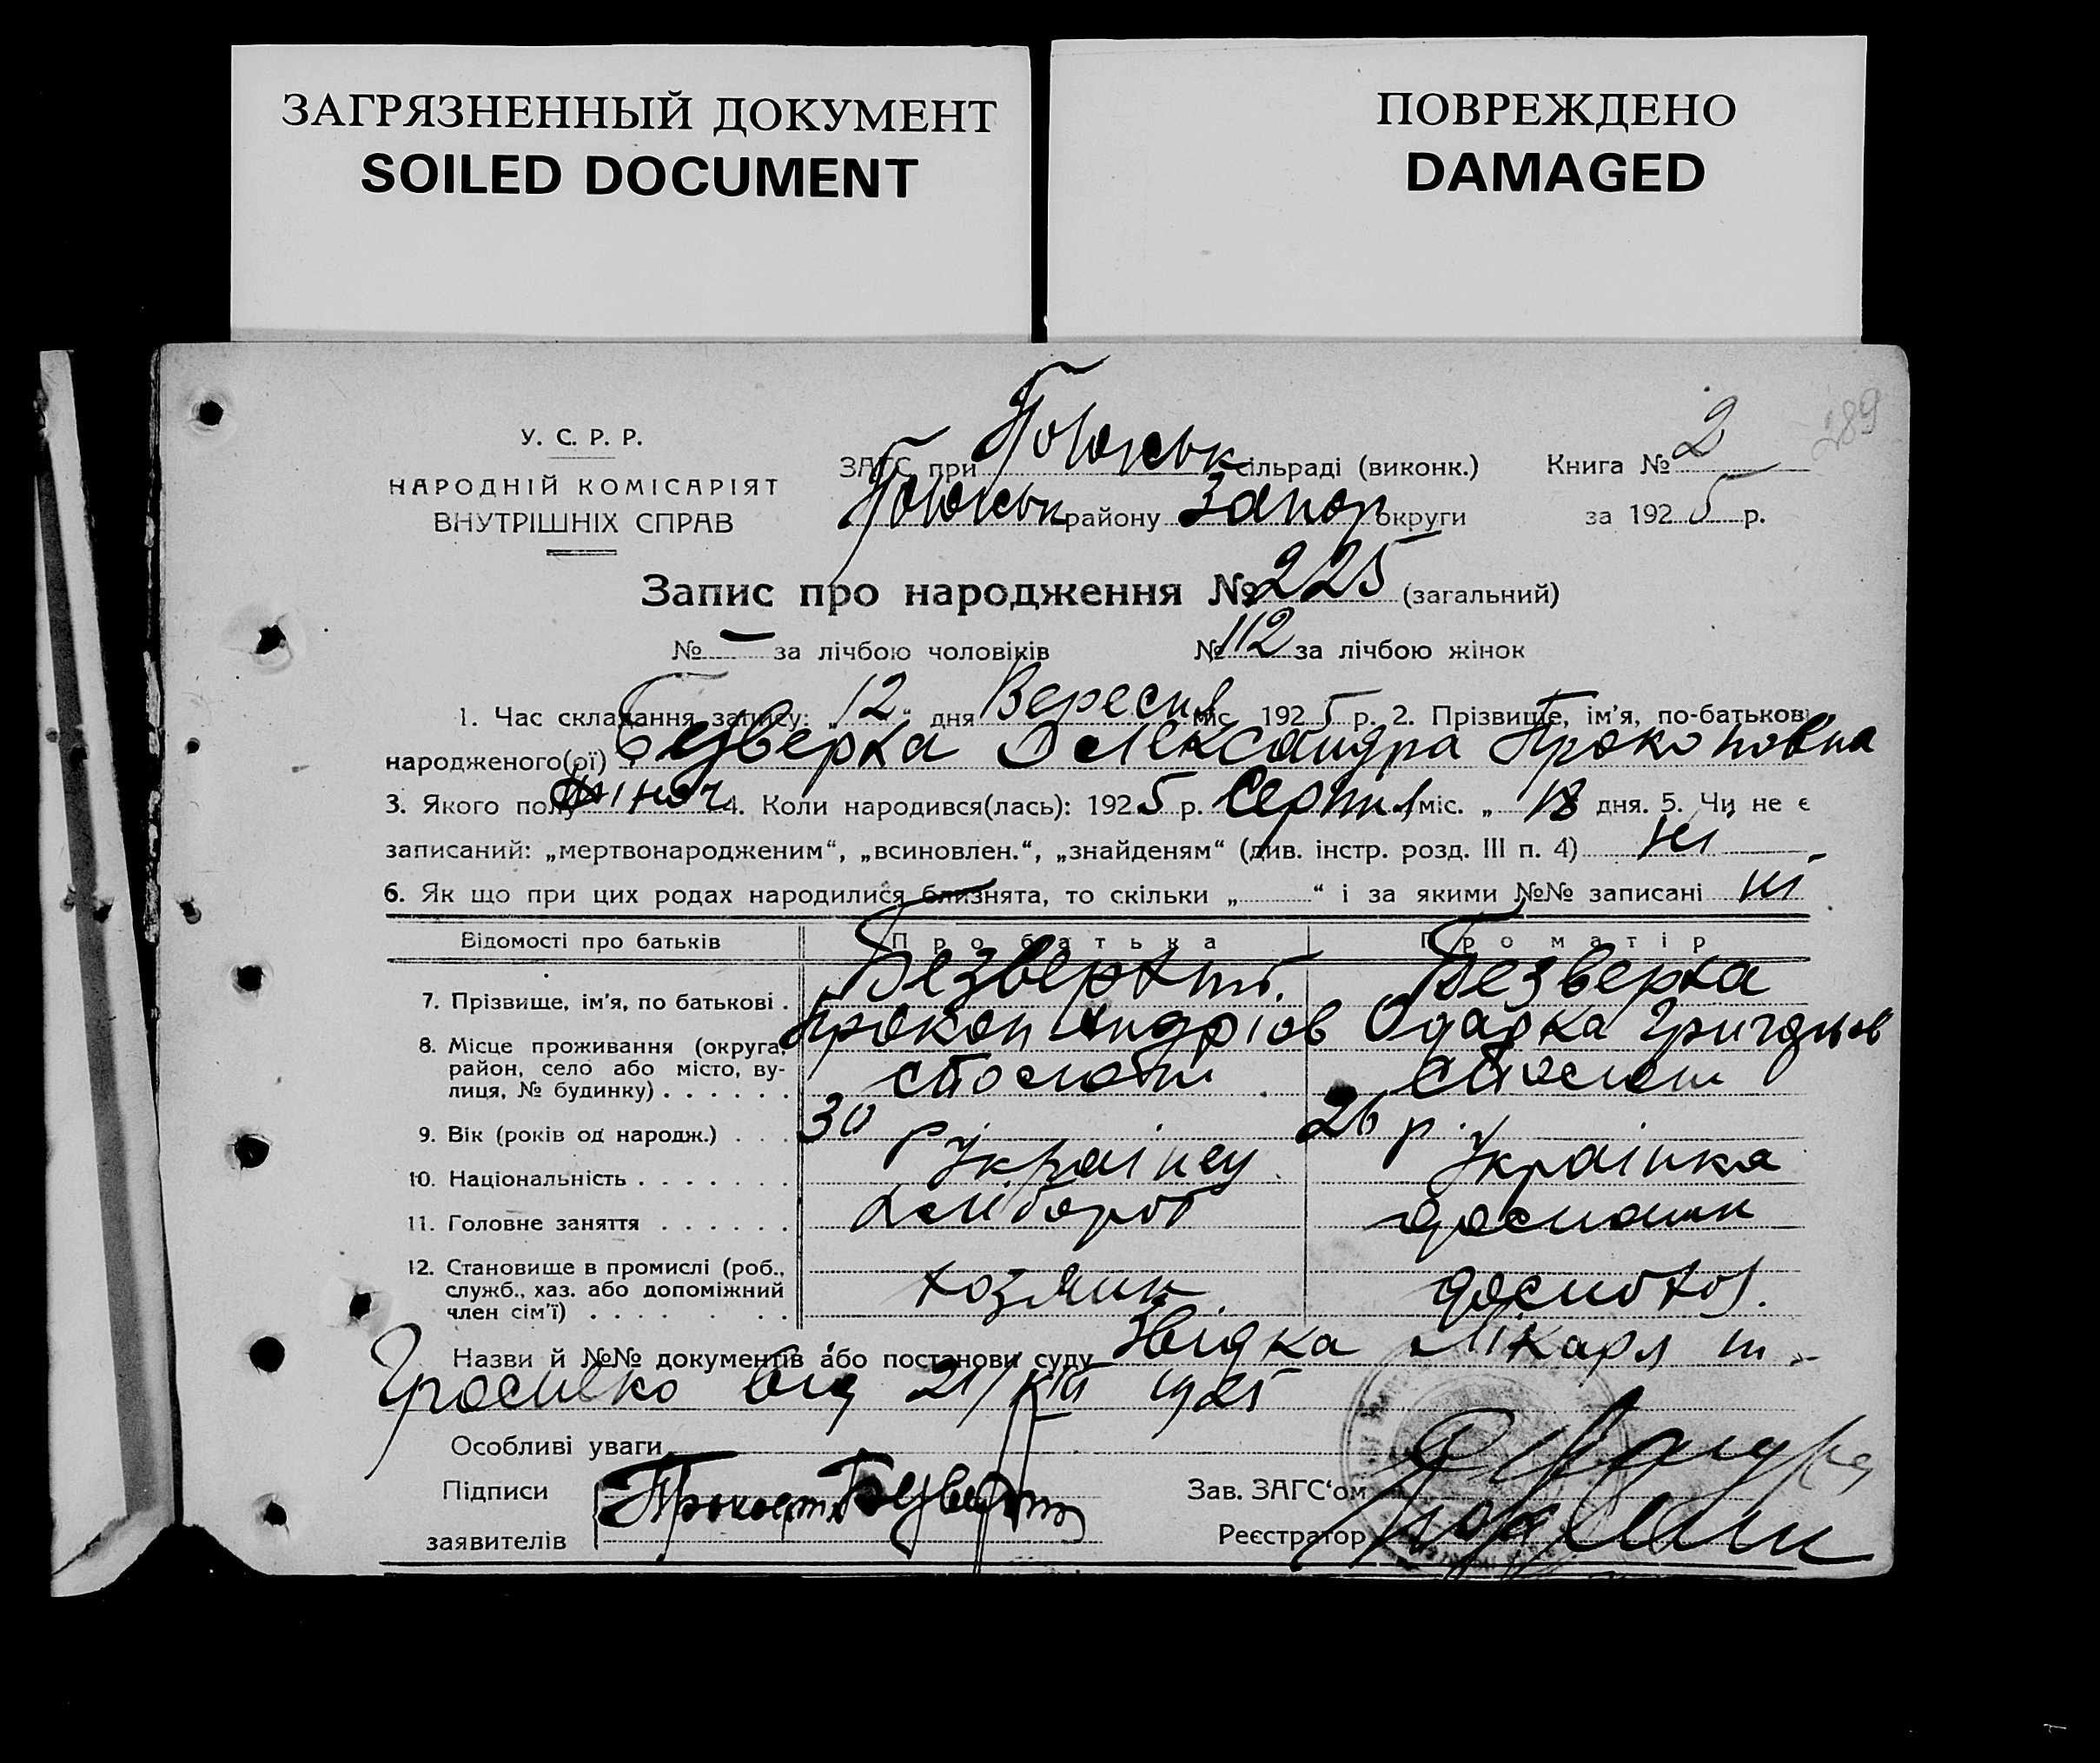 ЗАГРЯЗНЕННЫЙ ДОКУМЕНТ
SOILED DOCUMENT
ПОВРЕЖДЕНО
DAMAGED
289
У. С. Р. Р.
НАРОДНІЙ КОМІСАРІЯТ
ВНУТРІШНІХ СПРАВ
ЗАГС при сільраді (виконк.)
району Запор округи
Книга № 2
за 1925 р.
Запис про народження № 225 (загальний)
№ — за лічбою чоловіків № 112 за лічбою жінок
1. Час складання запису: „12“ дня Вересня міс. 1925 р. 2. Прізвище, ім’я, по-батькові
народженого(ої) Безверха Олександра Прокоповна
3. Якого полу жіноч 4. Коли народився(лась): 1925 р. Серпня міс. „ 18 дня. 5. Чи не є
записаний: „мертвонародженим“, „всиновлен.“, „знайденям“ (див. інстр. розд. III п. 4) Ні
6. Як що при цих родах народилися близнята, то скільки „ “ і за якими №№ записані ні
Відомості про батьків Про батька Про матір
7. Прізвище, ім’я, по батькові . Безверхий. Безверха
Прокоп Андріов Одарка Григорьов
8. Місце проживання (округа,
район, село або місто, ву-
лиця, № будинку) . . . . . .
9. Вік (років од народж.) . . . 30 р 26 р.
10. Національність . . . . . . . Українец Українка
11. Головне заняття . . . . . . хлібороб
12. Становище в промислі (роб.,
служб., хаз. або допоміжний
член сім’ї) . . . . . . . хозяин
Назви й №№ документів або постанови суду Звідка Лікаря
від 21/VIII 1925
Особливі уваги
Підписи
заявителів
Прокоп Безверхий
Зав. ЗАГС‘ом
Реєстратор